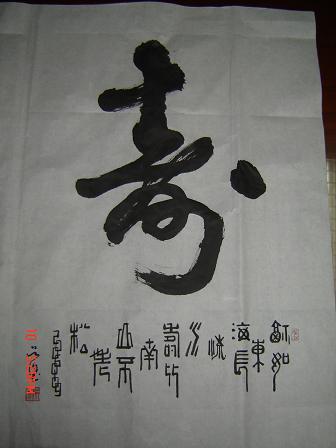 寿
福如東海長流水壽比南山不老松